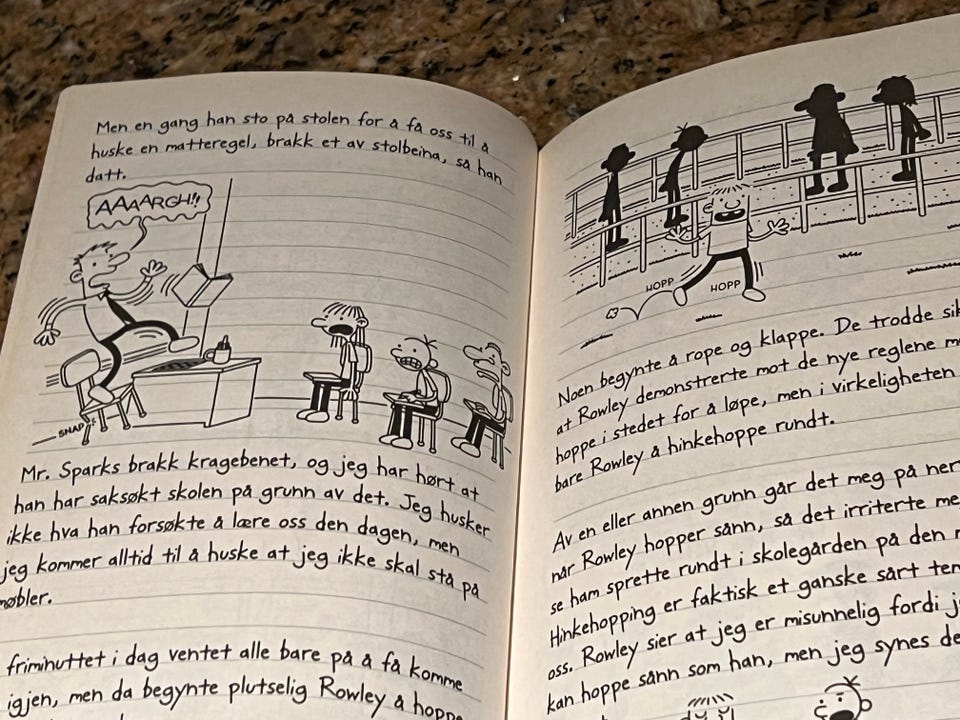 Men en gang han sto på stolen for å få oss til å
huske en matteregel, brakk et av stolbeina, så han
datt.
AAAARGH!!
SNAP
Mr. Sparks brakk kragebenet, og jeg har hørt at
han har saksøkt skolen på grunn av det. Jeg husker
ikke hva han forsøkte å lære oss den dagen, men
jeg kommer alltid til å huske at jeg ikke skal stå på
møbler.
friminuttet i dag ventet alle bare på å få komme
igjen, men da begynte plutselig Rowley å hoppe
HOPP
HOPP
Noen begynte å rope og klappe. De trodde
at Rowley demonstrerte mot de nye reglene
hoppe i stedet for å løpe, men i virkeligheten
bare Rowley å hinkehoppe rundt.
Av en eller annen grunn går det meg på
når Rowley hopper sånn, så det irriterte
se ham sprette rundt i skolegården på den
Hinkehopping er faktisk et ganske sårt
oss. Rowley sier at jeg er misunnelig fordi
kan hoppe sånn som han, men jeg synes